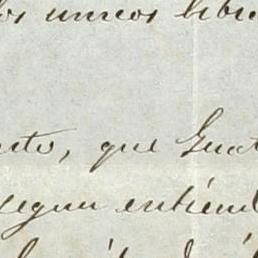 los unicos libr
nto, que Guat
segun entiend